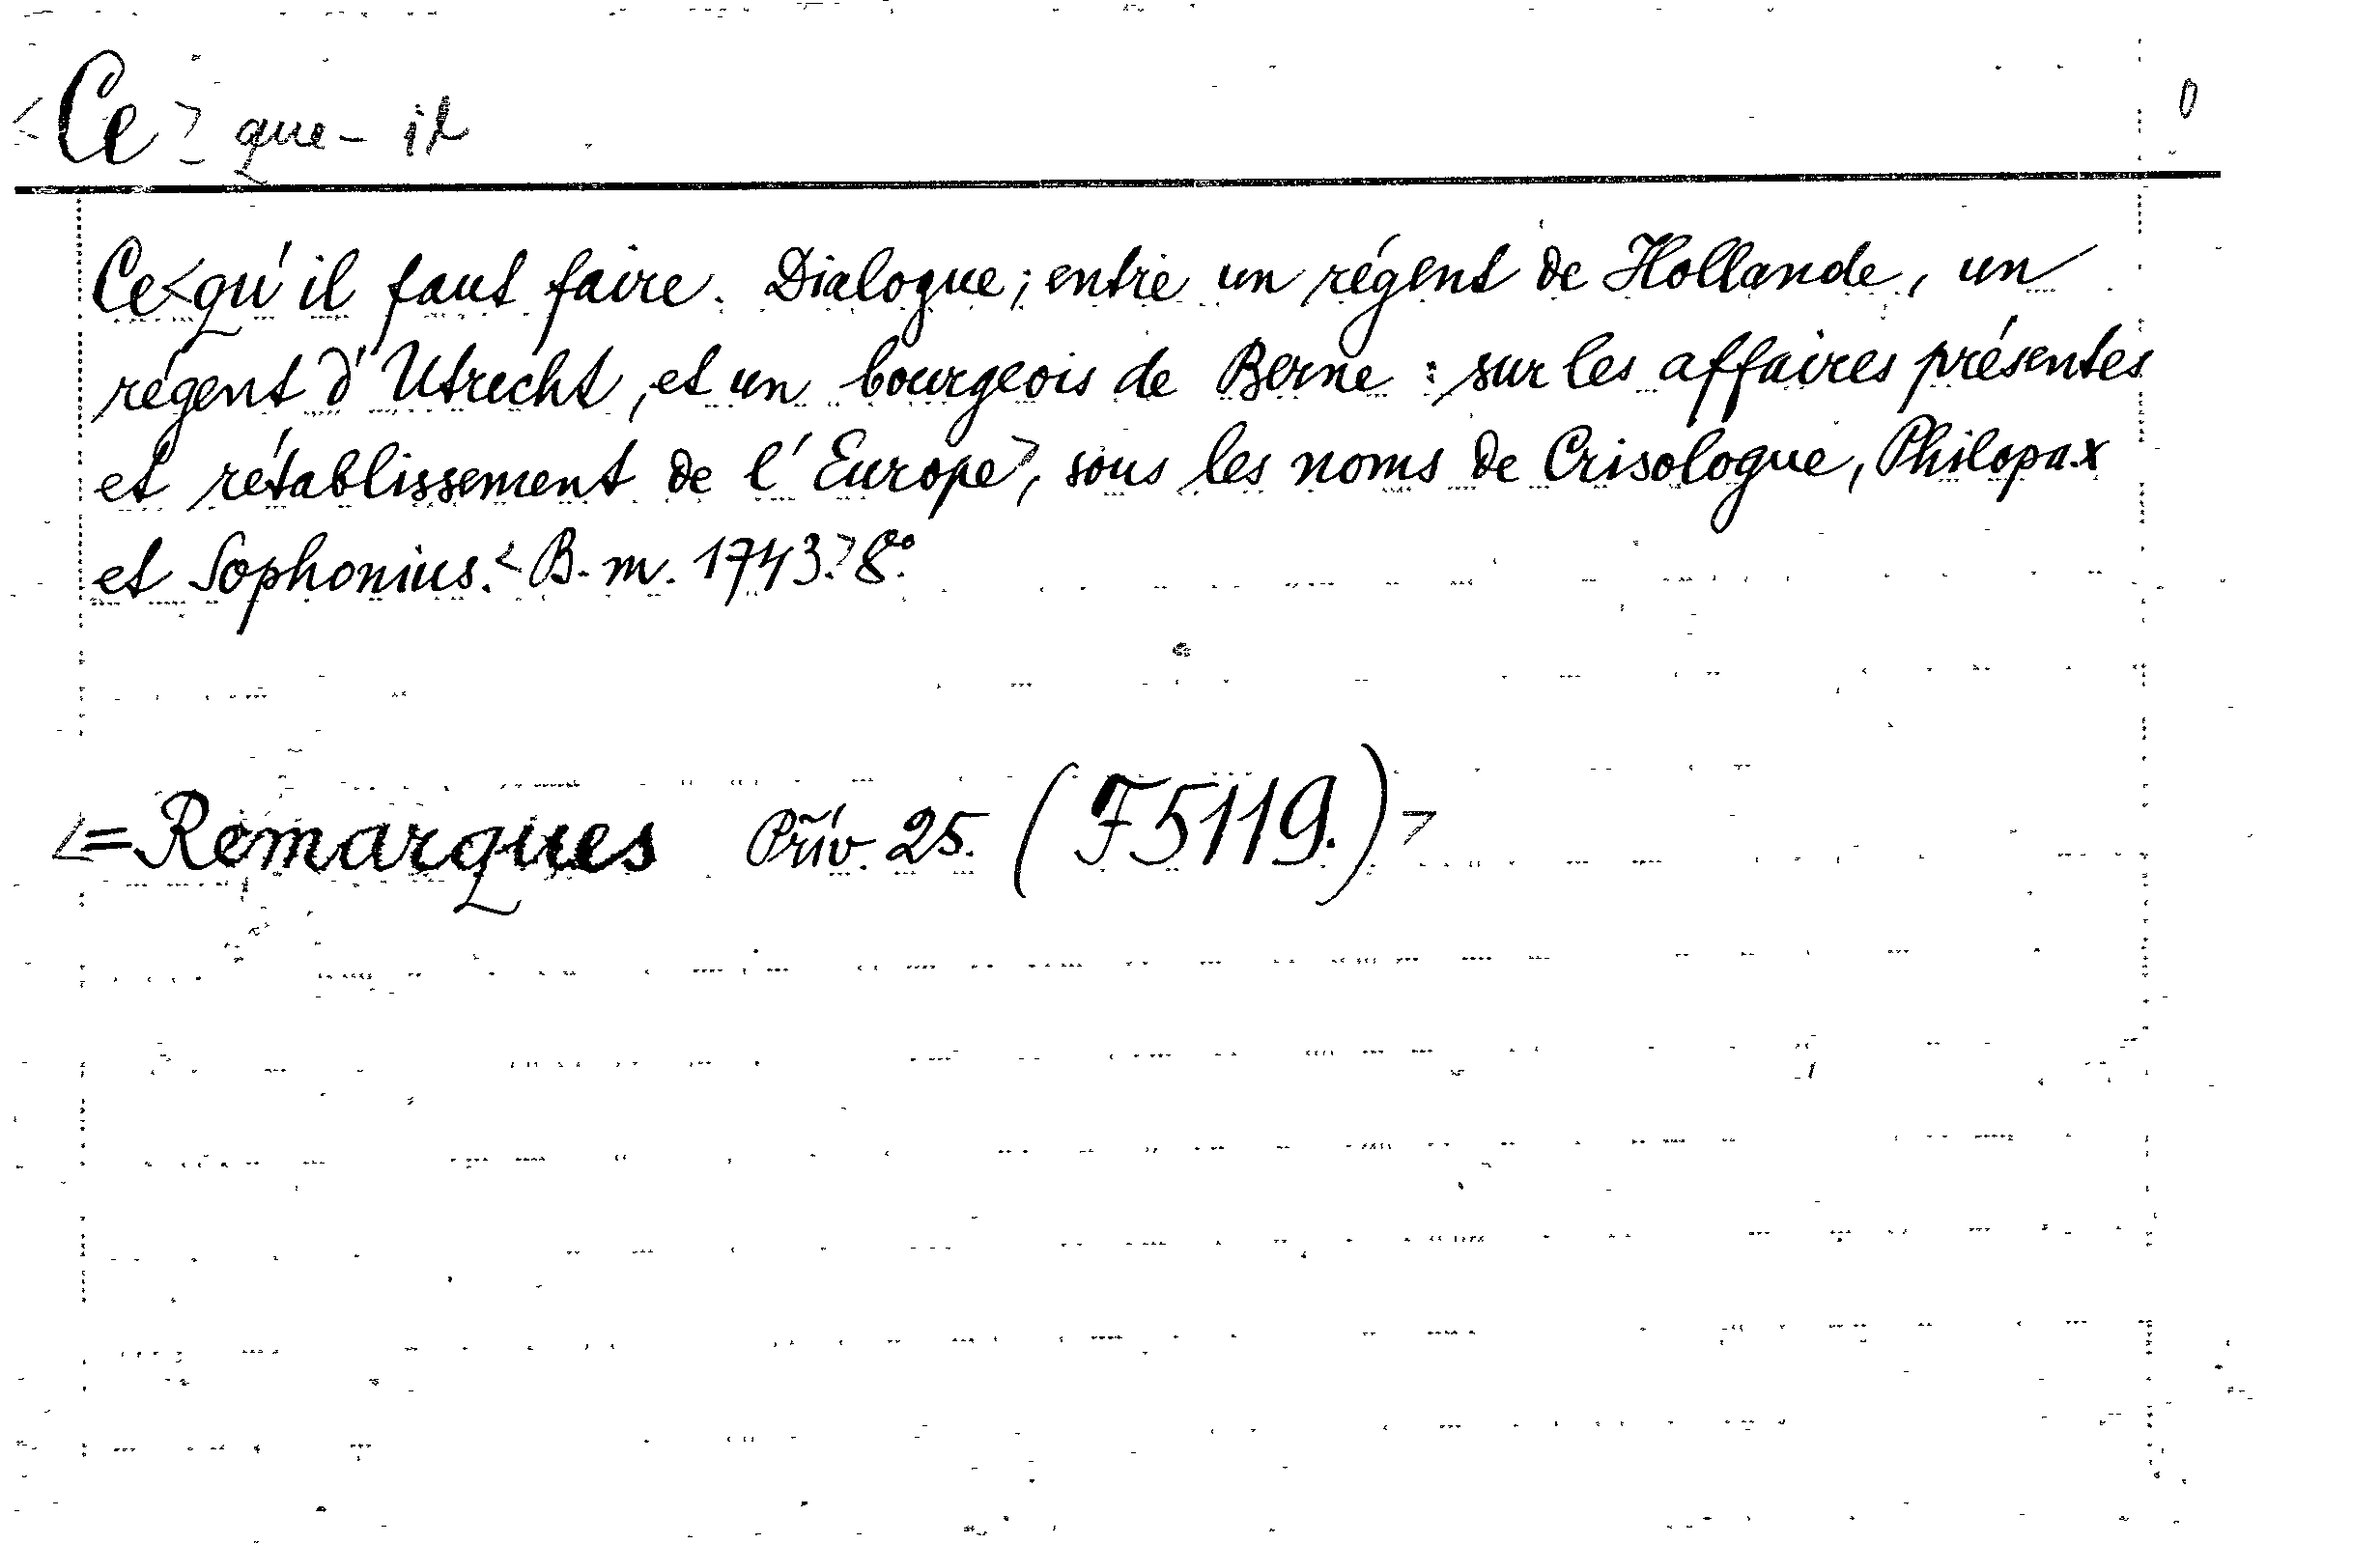 <Ce> que- il 0
Ce<qu'il faut faire. Dialogue; entre un régent de Hollande, un
régent d'Utrecht, et un bourgeois de Berne : sur les affaires présentes
et rétablissement de l'Europe>, sous les noms de Crisologue, Philopax
et Sophonius.<B. m. 1743.>8°.
<=Remarques Priv. 25. (F5119.)>